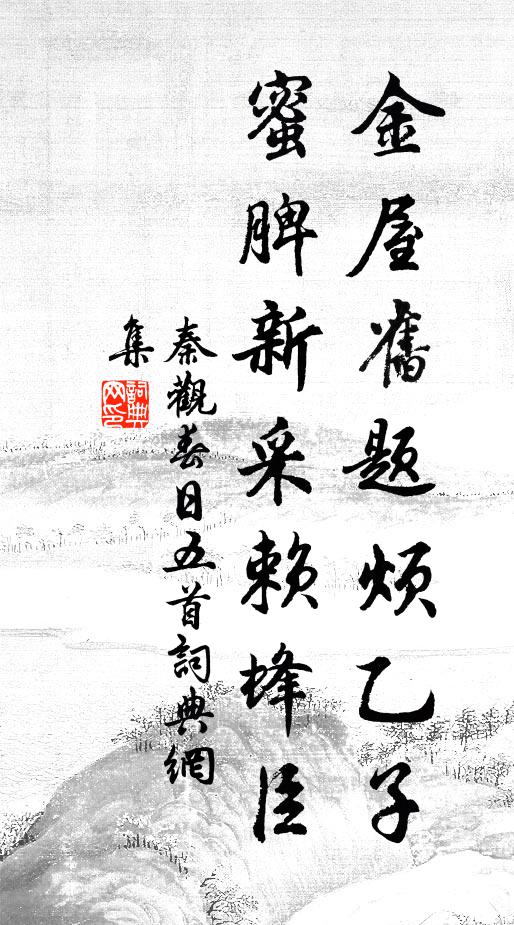 金屋舊题烦乙子
蜜脾新采赖蜂臣
秦觀春日五首詞典網
集
詞典
网印